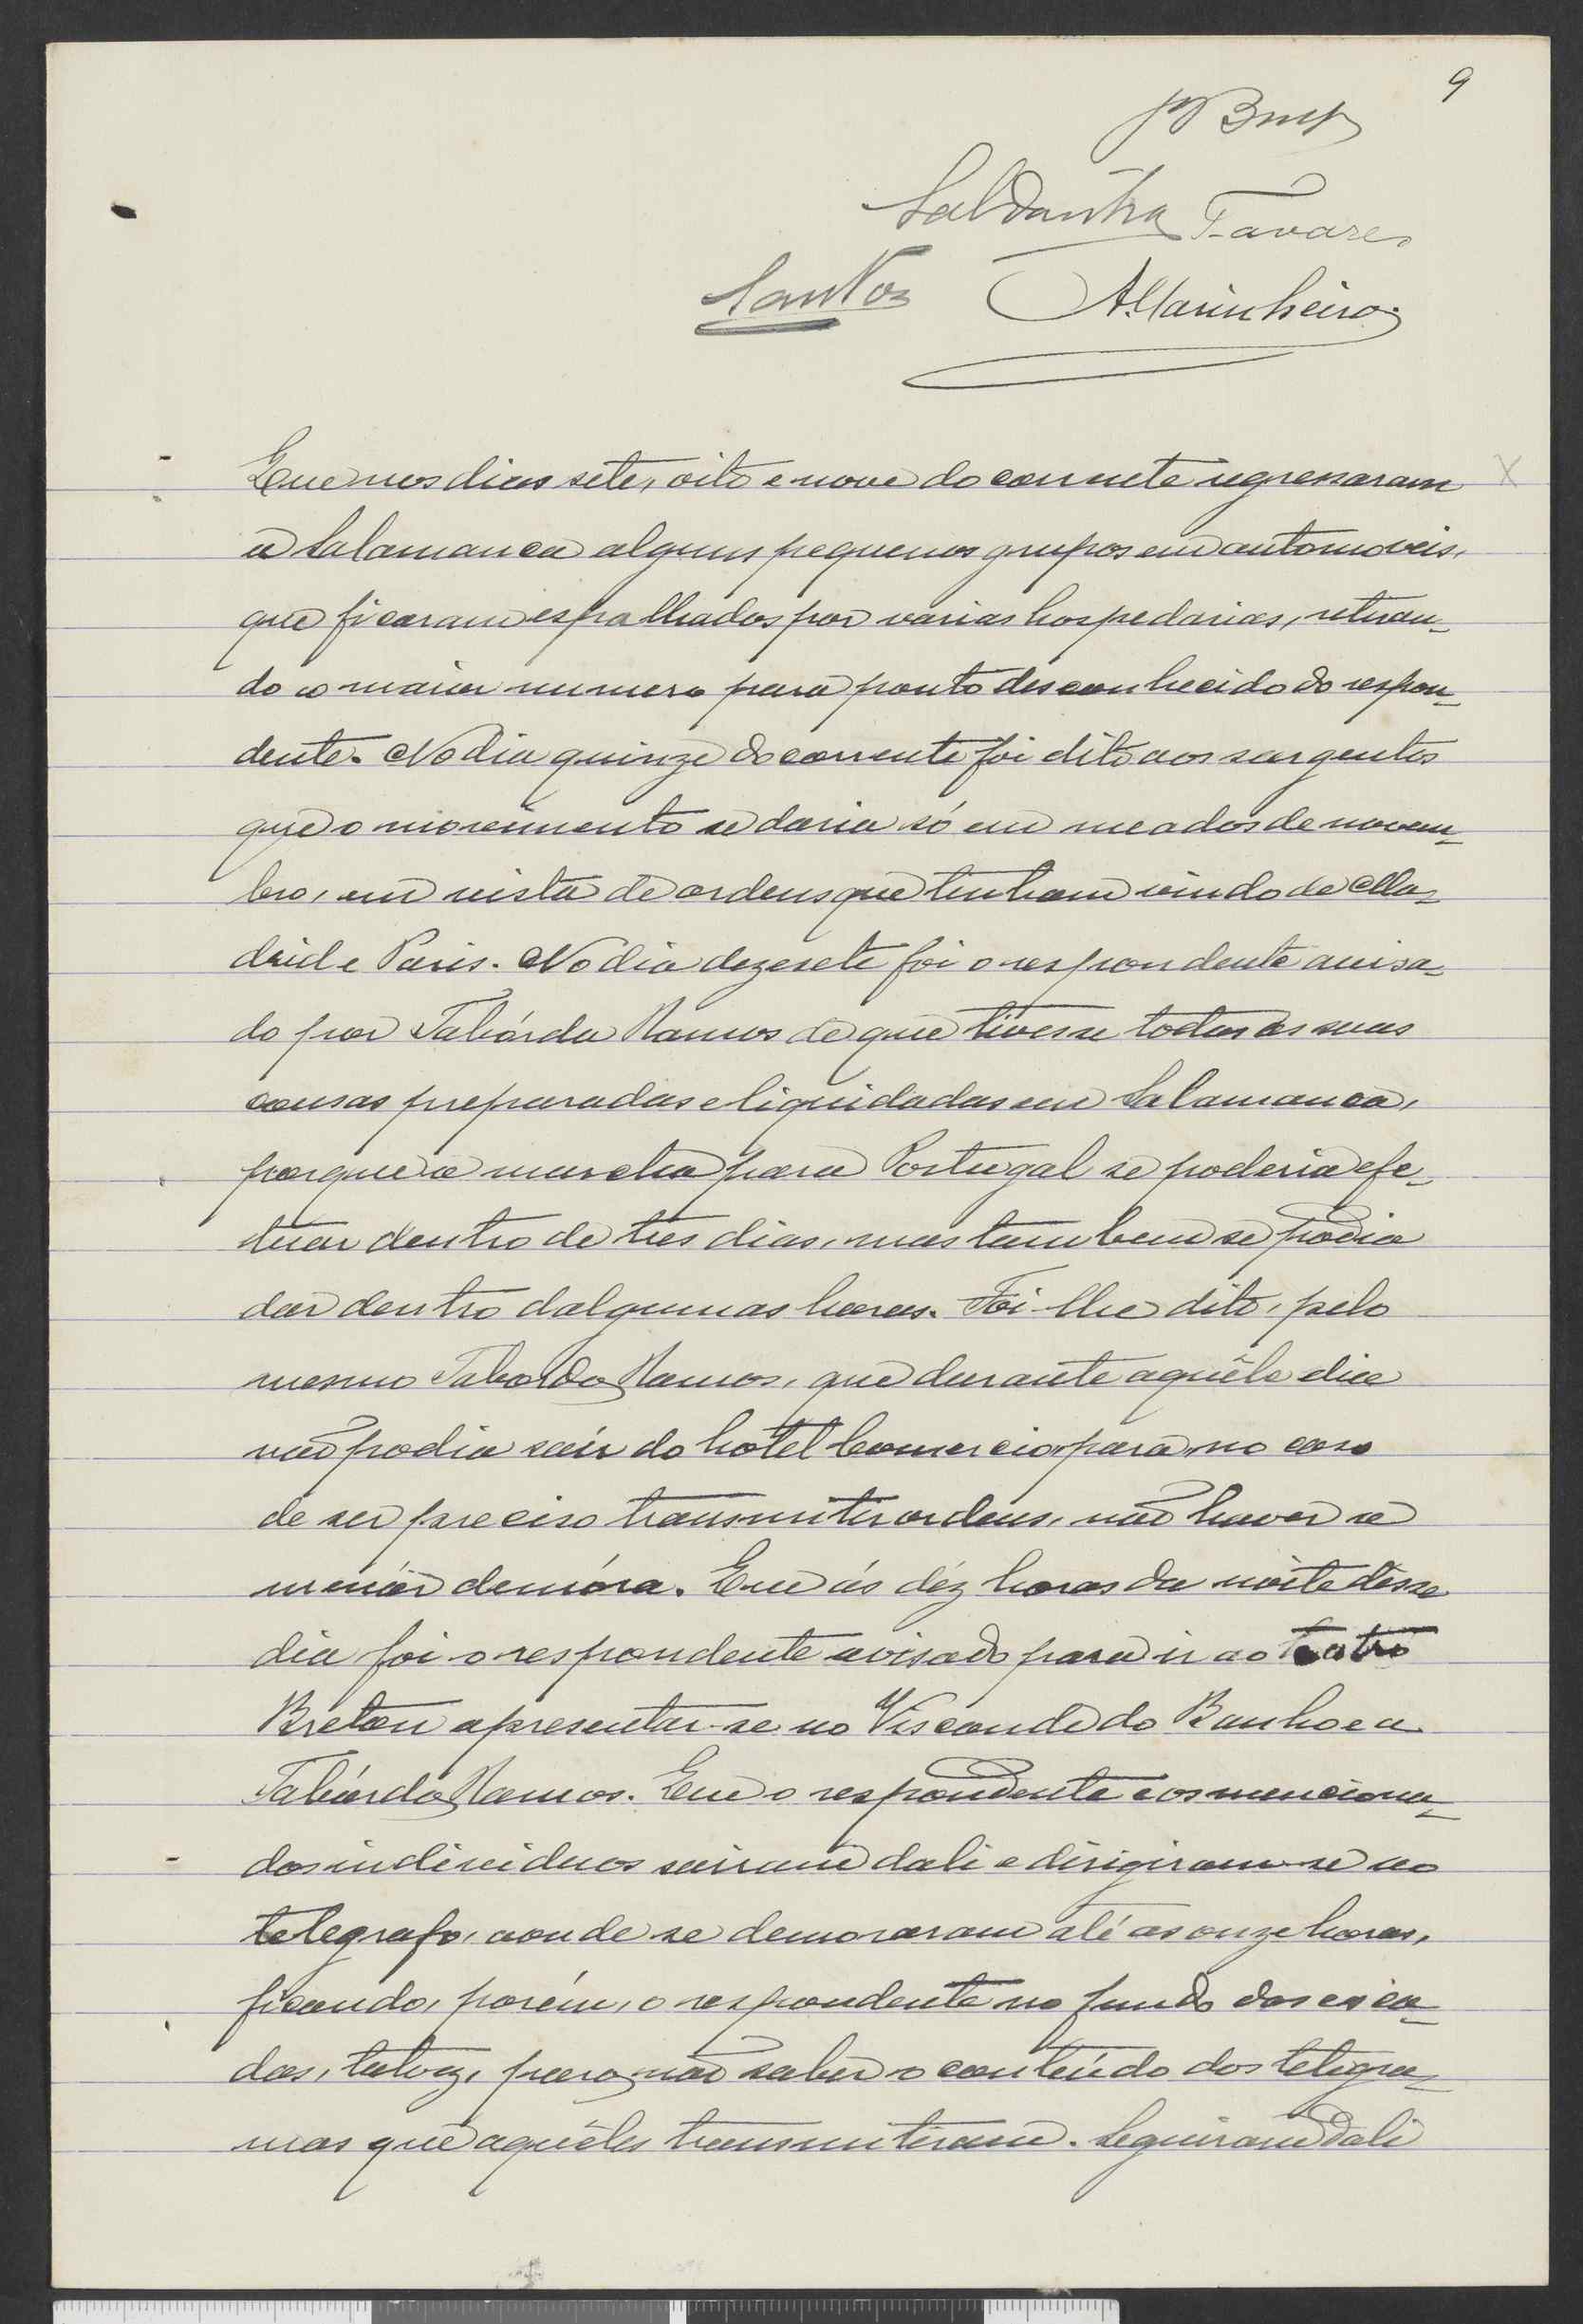 9
Saldanha Tavares
Santos A. Marinheiro
Que nos dias sete, oito e nove do corrente regressaram
a Salamanca alguns pequenos grupos em automoveis,
que ficaram espalhados por varias hospedarias, retiran-
do o maior numero para ponto desconhecido do respon-
dente. No dia quinze do corrente foi dito aos sargentos
que o movimento se daria só em meados de novem-
bro, em vista de ordens que tinham vindo de Ma-
drid e Paris. No dia dezesete foi o respondente avisa-
do por Tabórda Ramos de que tivesse todas as suas
cousas preparadas e liquidadas em Salamanca,
porque a marcha para Portugal se poderia efe-
tuar dentro de tres dias, mas tambem se podia
dar dentro dalgumas horas. Foi-lhe dito, pelo
mesmo Taborda Ramos, que durante aquêle dia
não podia saír do hotel Comercio para, no caso
de ser preciso transmitir ordens, não haver a
menór demóra. Que ás déz horas da noite dêsse
dia foi o respondente avisado para ir ao teatro
Breton apresentar-se ao Visconde do Banho e a
Tabórda Ramos. Que o respondente e os menciona-
dos individuos sairam dali e dirigiram-se ao
telegrafo, aonde se demoraram até as onze horas,
ficando, porém, o respondente no fundo das esca-
das, talvez, para não saber o conteúdo dos telegra-
mas que aquêles transmitiram. Seguiram dali